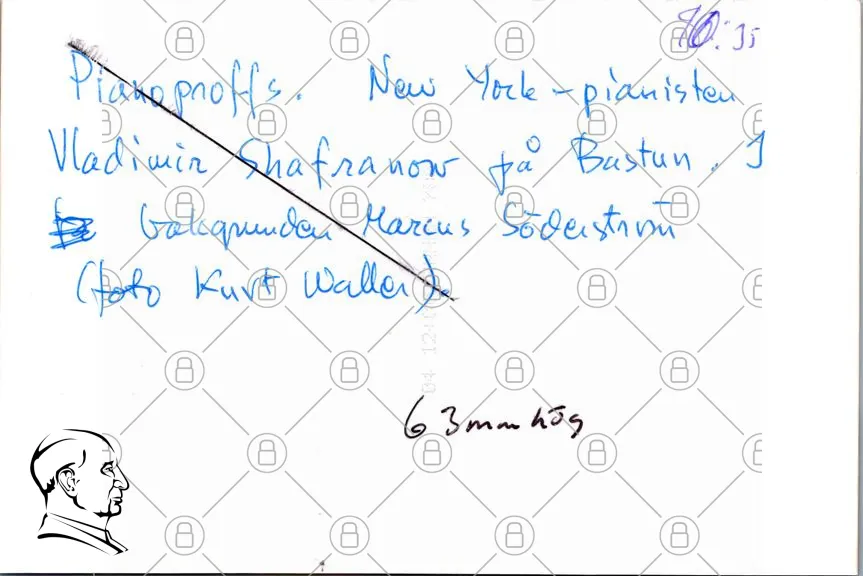 10:35
Pianoproffs. New York-pianisten
Vladimir Shafranow på Bastun. I
bakgrunden Marcus Söderström
(foto Kurt Waller).
63mm hög